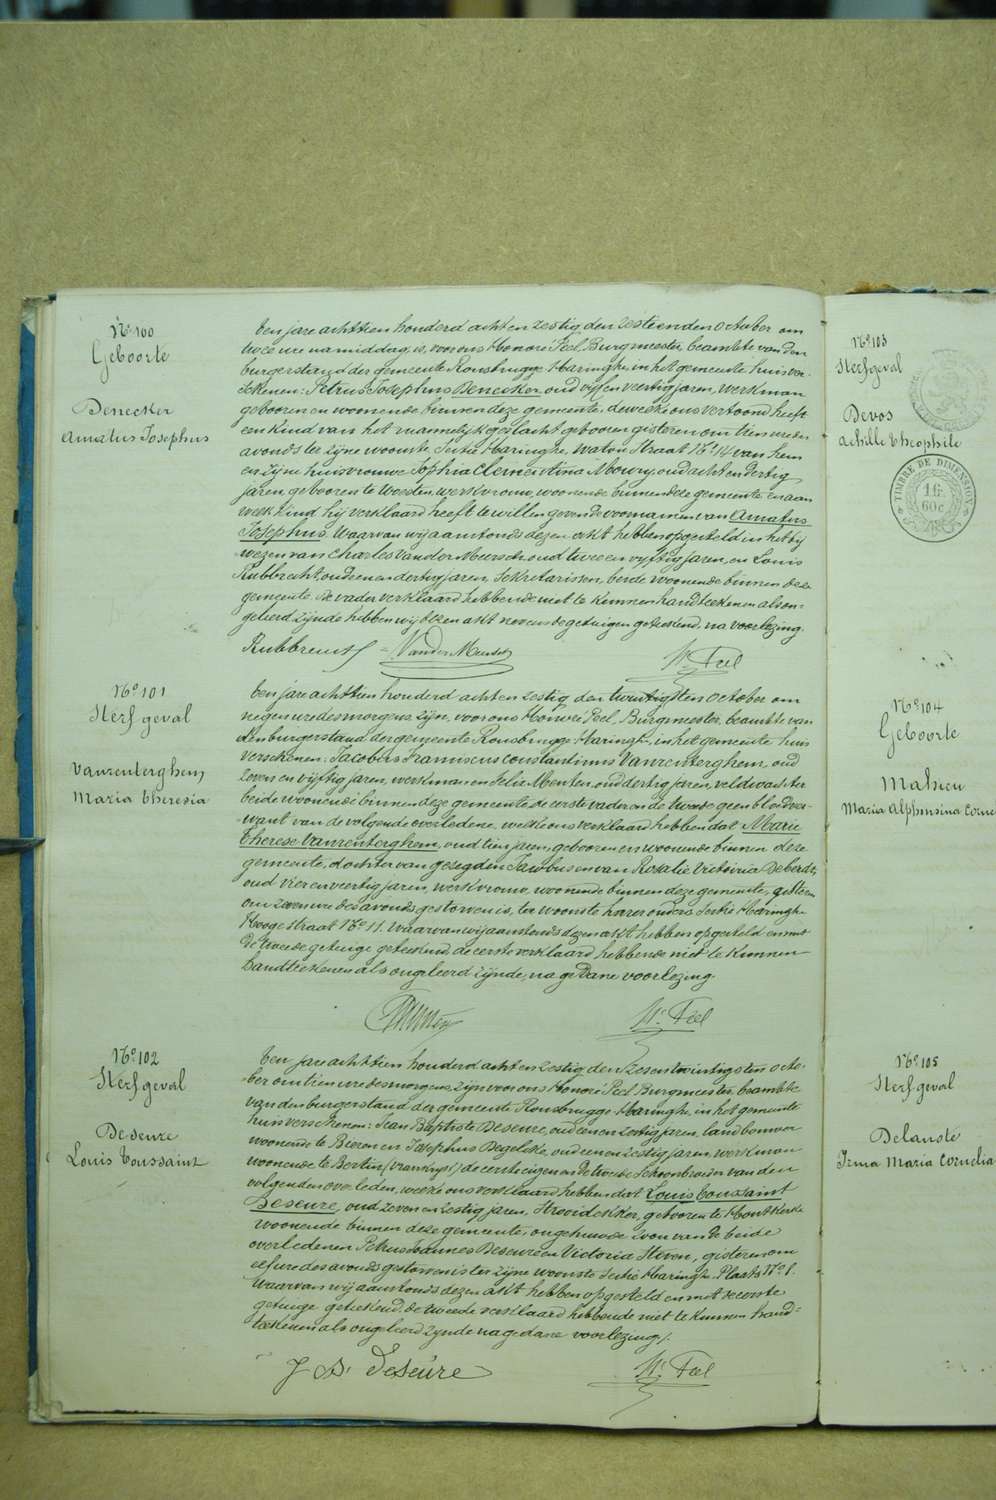 No 100
Geboorte
Denecker
Amatus Josephus
Ten jare achttien honderd acht en zestig, den zesteenden October om
twee ure namiddag, is, voor ons Honoré Peel, Burgmeester, beambte van den
burgerstand der gemeente Rousbrugge-Haringhe, in het gemeente huis ver-
schenen: Petrus Josephus Denecker, oud vijf en veertig jaren, werkman
gebooren en woonende binnen deze gemeente, dewelke ons vertoond heeft
een kind van het mannelijk geslacht gebooren gisteren om tien uren
avonds te zijne woonste, Sectie Haringhe, Watou Straat No 14 van hem
en zijne huisvrouwe Sophia Clementina Moury, oud acht en dertig
jaren, gebooren te Woesten, werkvrouw, woonende binnen deze gemeente en aan
welk kind hij verklaard heeft te willen geven de voornamen van Amatus
Josephus. Waarvan wij aanstonds dezen akt hebben opgesteld in het bij
wezen van Charles Vander Meersch, oud twee en vijftig jaren, en Louis
Rubbrecht, oud een en dertig jaren, Sekretarissen, beide woonende binnen deze
gemeente. De vader verklaard hebbende niet te kunnen handteekenen als on-
geleerd zijnde hebben wij dezen akt nevens de getuigen geteekend, na voorlezing.
Rubbrecht VanderMeersch H. Peel
No 101
Sterfgeval
Vanrenterghem
Maria Theresia
Ten jare achttien honderd acht en zestig, den twintigsten October om
negen ure des morgens, zijn, voor ons Honoré Peel, Burgmeester, beambte van
den burgerstand der gemeente Rousbrugge-Haringhe, in het gemeente huis
verschenen: Jacobus Franciscus Constantinus Vanrenterghem, oud
zeven en vijftig jaren, werkman en Felix Menten, oud dertig jaren, veldwachter
beide woonende binnen deze gemeente de eerste vader en de tweede geen bloedver-
want van de volgende overledene, welke ons verklaard hebben dat Marie
Therese Vanrenterghem, oud tien jaren, gebooren en woonende binnen deze
gemeente, dochter van gezegden Jacobus en van Rosalie Victoria Deberdt,
oud vier en veertig jaren, werkvrouw, woonende binnen deze gemeente, gisteren
om zeven ure des avonds gestorven is, ter woonste harer ouders Sectie Haringhe
Hooge straat No 11. Waarvan wij aanstonds dezen akt hebben opgesteld en met
de tweede getuige geteekend, de eerste verklaard hebbende niet te kunnen
handteekenen als ongeleerd zijnde, na gedane voorlezing.
H. Peel
No 102
Sterfgeval
Deseure
Louis Toussaint
Ten jare achttien honderd acht en zestig den zesentwintigsten octo-
ber om tien ure des morgens, zijn voor ons Honoré Peel Burgmeester, beambte
van den burgerstand der gemeente Rousbrugge-Haringhe, in het gemeente
huis verschenen: Jean Baptiste Deseure, oud een en zestig jaren, landbouwer
woonende te Bieren en Josephus Degelcke, oud een en zestig jaren, werkman
woonende te Bertin (vrankrijk) de eerste eigen en de tweede schoonbroeder van den
volgenden overleden, welke ons verklaard hebben dat Louis Toussaint
Deseure, oud zeven en zestig jaren, Strooidekker, gebooren te Houtkerke
woonende binnen deze gemeente, ongehuwde zoon van de beide
overledenen Petrus Joannes Deseure en Victoria Steven, gisteren om
elf ure des avonds gestorven is ter zijne woonste Sectie Haringhe Plaats No 1.
Waarvan wij aanstonds dezen akt hebben opgesteld en met de eerste
getuige geteekend, de tweede verklaard hebbende niet te kunnen hand-
teekenen als ongeleerd zijnde na gedane voorlezing.
J B. Deseure H. Peel
No 103
Sterfgeval
Devos
Achille Theophile
TIMBRE DE DIMENSION
16
60 c
No 104
Geboorte
Mahieu
Maria Alphonsina Corne
No 105
Sterfgeval
Delauste
Irma Maria Cornelia